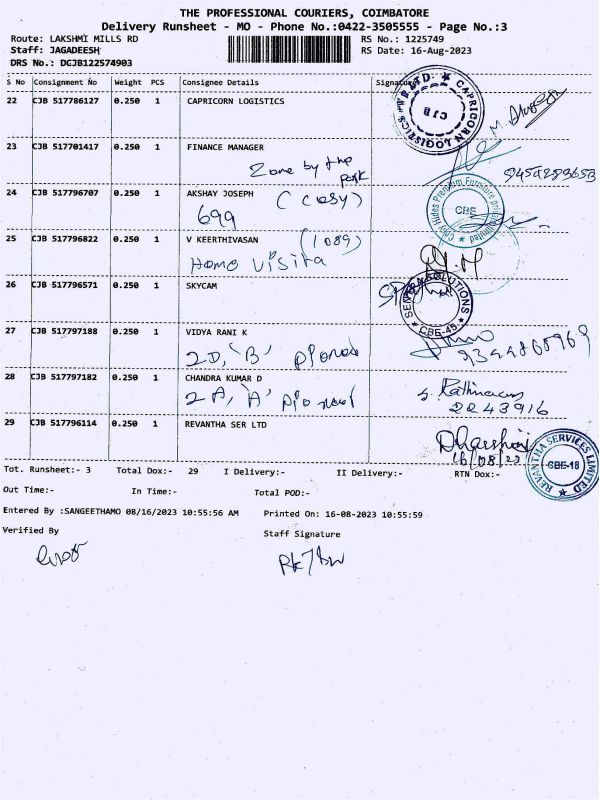 THE PROFESSIONAL COURIERS, COIMBATORE
Delivery Runsheet - MO - Phone No.:0422-3505555 - Page No.:3
Route: LAKSHMI MILLS RD RS No.: 1225749
Staff: JAGADEESH RS Date: 16-Aug-2023
DRS No.: DGJB122574903
S No Consignment No Weight PCS Consignee Details Signature
22 CJB 517786127 0.250 1 CAPRICORN LOGISTICS
CAPRICORN LOGISTICS PVT LTD. CJB
23 CJB 517701417 0.250 1 FINANCE MANAGER
Zone by the park
24 CJB 517796707 0.250 1 AKSHAY JOSEPH
699
Premium Furniture CBE
25 CJB 517796822 0.250 1 V KEERTHIVASAN (1089)
Homo Visita
26 CJB 517796571 0.250 1 SKYCAM
SOLUTIONS CBE-45
27 CJB 517797188 0.250 1 VIDYA RANI K
2D, 'B'
28 CJB 517797182 0.250 1 CHANDRA KUMAR D
2A, 'A'
2243916
29 CJB 517796114 0.250 1 REVANTHA SER LTD
16/08/23
REVANTHA SERVICES LIMITED CBE-18
Tot. Runsheet:- 3 Total Dox:- 29 I Delivery:- II Delivery:- RTN Dox:-
Out Time:- In Time:- Total POD:-
Entered By :SANGEETHAMO 08/16/2023 10:55:56 AM Printed On: 16-08-2023 10:55:59
Verified By Staff Signature